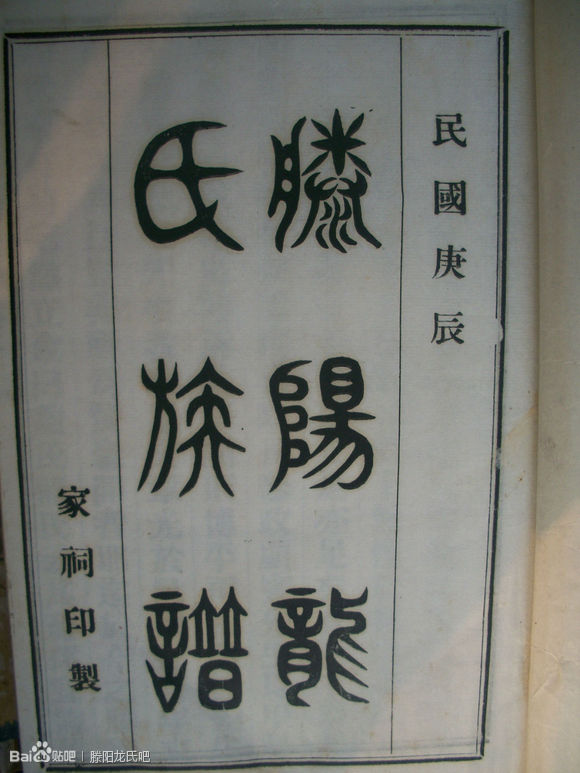 民國庚辰
滕陽龍
氏族譜
家祠印製
Bai貼吧 滕阳龙氏吧